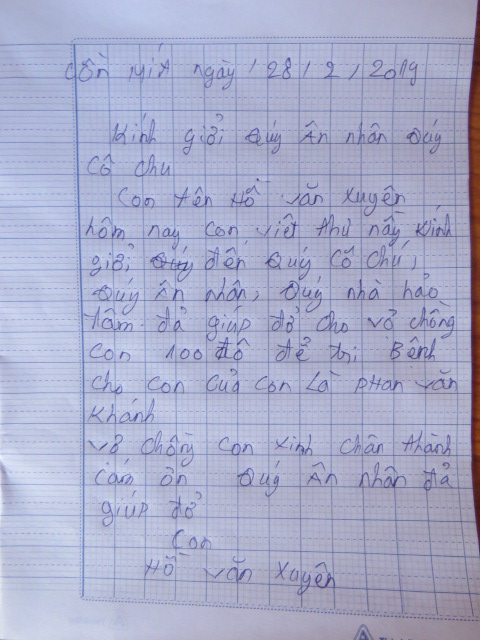 Cồn Mía ngày 28/2/2019
Kính giởi Quý Ân nhân Quý
Cô chu
Con tên Hồ văn Xuyên
hôm nay con viết thư nầy kính
giởi đến Quý Cô Chú,
Quý Ân nhân, Quý nhà hảo
tâm đả giúp đở cho vở chồng
con 100 đô để trị Bênh
cho con của con Là pHan văn
Khánh
vở chồng con xinh chân thành
cám ơn Quý Ân nhân đả
giúp đở
Con
Hồ văn Xuyên